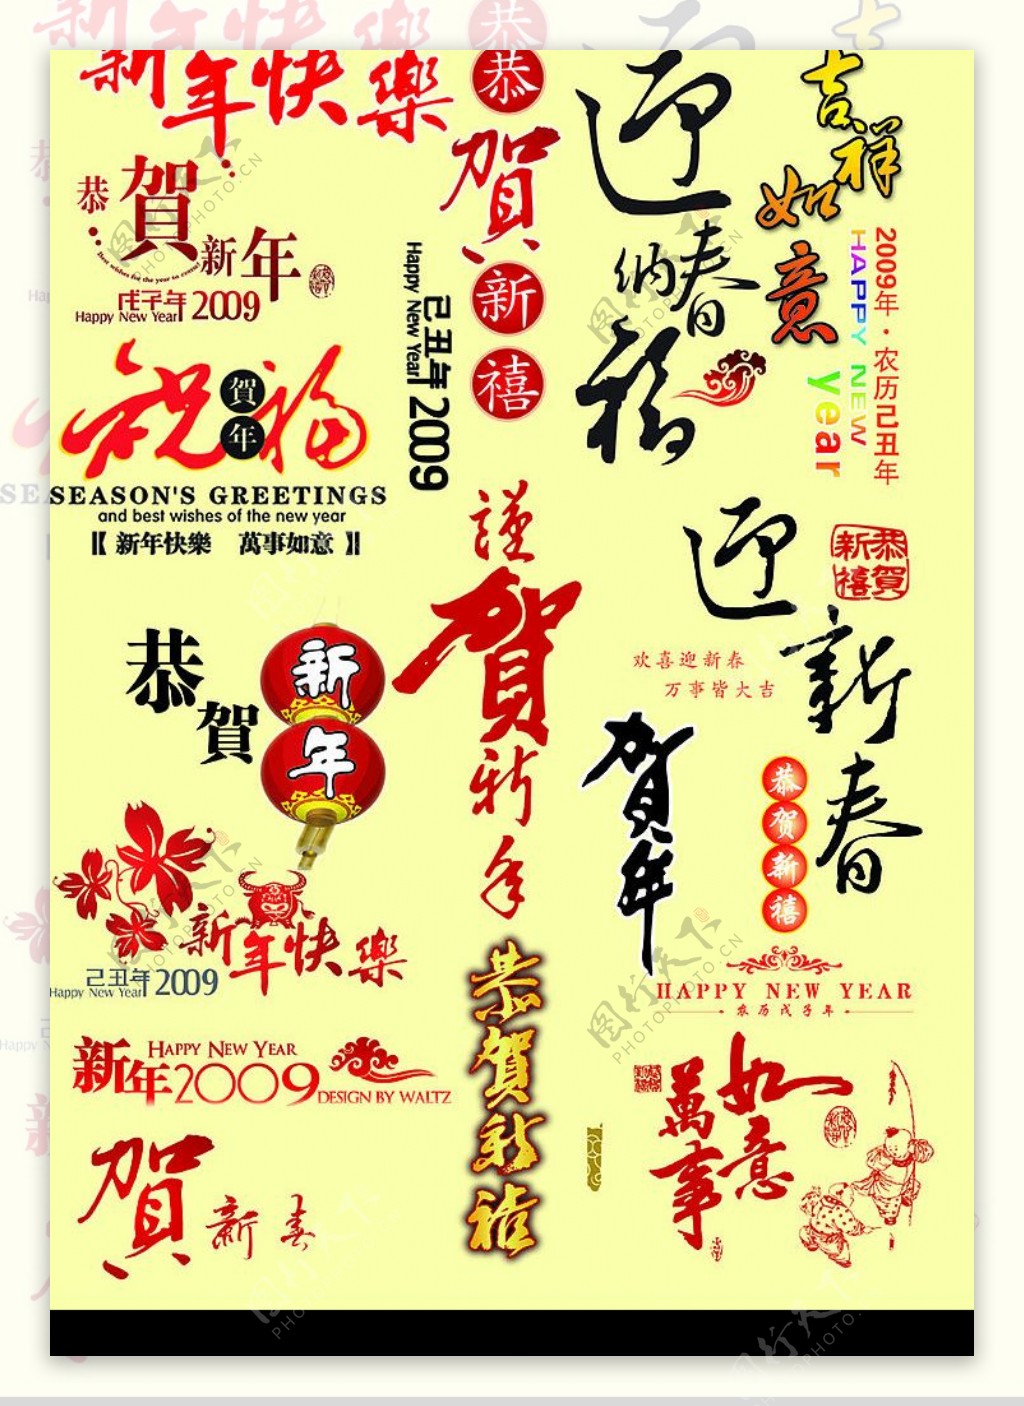 新年快樂
恭賀新禧
迎春納福
吉祥如意
2009年·农历己丑年
HAPPY NEW
year
恭賀新年
Best wishes for the year to come!
戊子年2009
Happy New Year
己丑年2009
Happy New Year
祝福
賀年
SEASON'S GREETINGS
and best wishes of the new year
【 新年快樂 萬事如意 】
謹賀新年
迎新春
恭賀新禧
欢喜迎新春
万事皆大吉
恭賀
新年
贺年
恭贺新禧
新年快樂
己丑年2009
Happy New Year
HAPPY NEW YEAR
农历戊子年
恭賀新禧
新年2009
HAPPY NEW YEAR
DESIGN BY WALTZ
萬事如意
賀新春